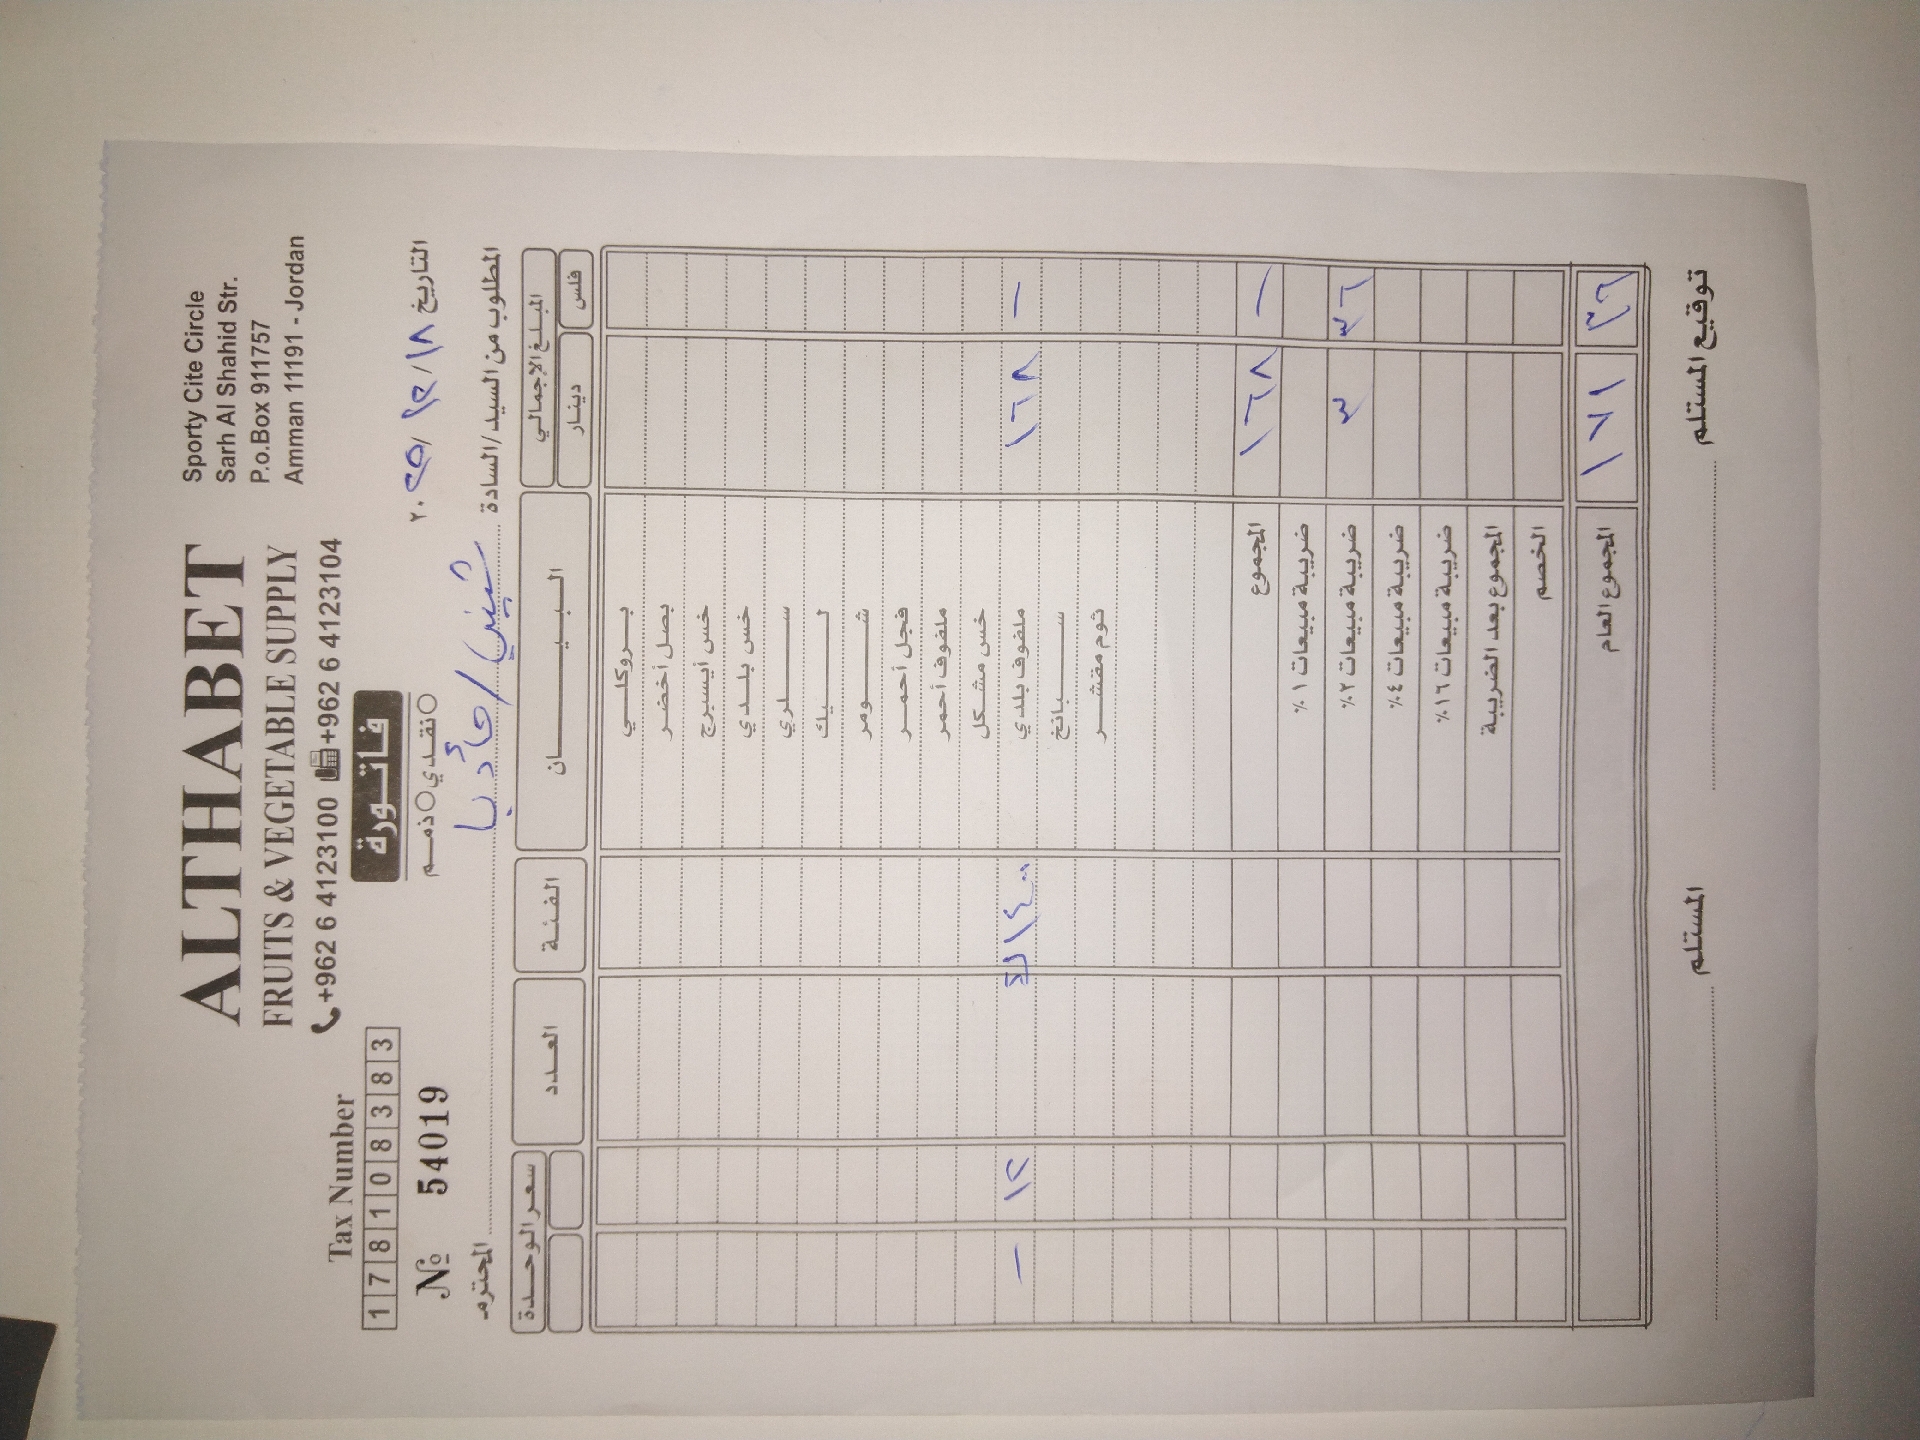 ALTHABET
FRUITS & VEGETABLE SUPPLY
+962 6 4123100 +962 6 4123104
Sporty Cite Circle
Sarh Al Shahid Str.
P.o.Box 911757
Amman 11191 - Jordan
Tax Number
1 7 8 1 0 8 3 8 3
فاتورة
نقدي ذمم
№ 54019
التاريخ ١٨ / ٢ / ٢٠٢٥
المطلوب من السيد/السادة المحترم
المبلغ الإجمالي البيــــان الفئة العدد سعر الوحدة
فلس دينار
بروكلي
بصل أخضر
خس أيسبرج
خس بلدي
سلري
ليك
شومر
فجل أحمر
ملفوف أحمر
خس مشكل
— ١٦٨ ملفوف بلدي ١٢ —
سبانخ
ثوم مقشر
— ١٦٨ المجموع
ضريبة مبيعات ١٪
٣٦ ٣ ضريبة مبيعات ٢٪
ضريبة مبيعات ٤٪
ضريبة مبيعات ١٦٪
المجموع بعد الضريبة
الخصم
٣٦ ١٧١ المجموع العام
توقيع المستلم المستلم